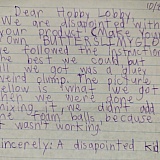 10/9
Dear Hobby Lobby
We are disapointed with
your product (Make your
own BUTTERSLIMYGLO
We followed the instruction
the best we could but
we got was a gluey
weird clump. The picture
yellow is what we got
when we were done
mixing it, we didn't add
the foam balls because
wasn't working.
Sincerely: A disapointed kid